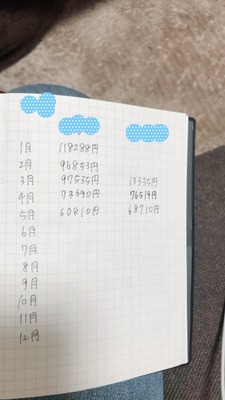 1月 118288円
2月 96853円
3月 97535円 13335円
4月 73690円 76519円
5月 60810円 68710円
6月
7月
8月
9月
10月
11月
12月